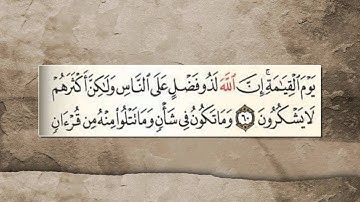 يَوْمَ ٱلْقِيَٰمَةِ ۗ إِنَّ ٱللَّهَ لَذُو فَضْلٍ عَلَى ٱلنَّاسِ وَلَٰكِنَّ أَكْثَرَهُمْ
لَا يَشْكُرُونَ ٦٠ وَمَا تَكُونُ فِى شَأْنٍ وَمَا تَتْلُوا۟ مِنْهُ مِن قُرْءَانٍ